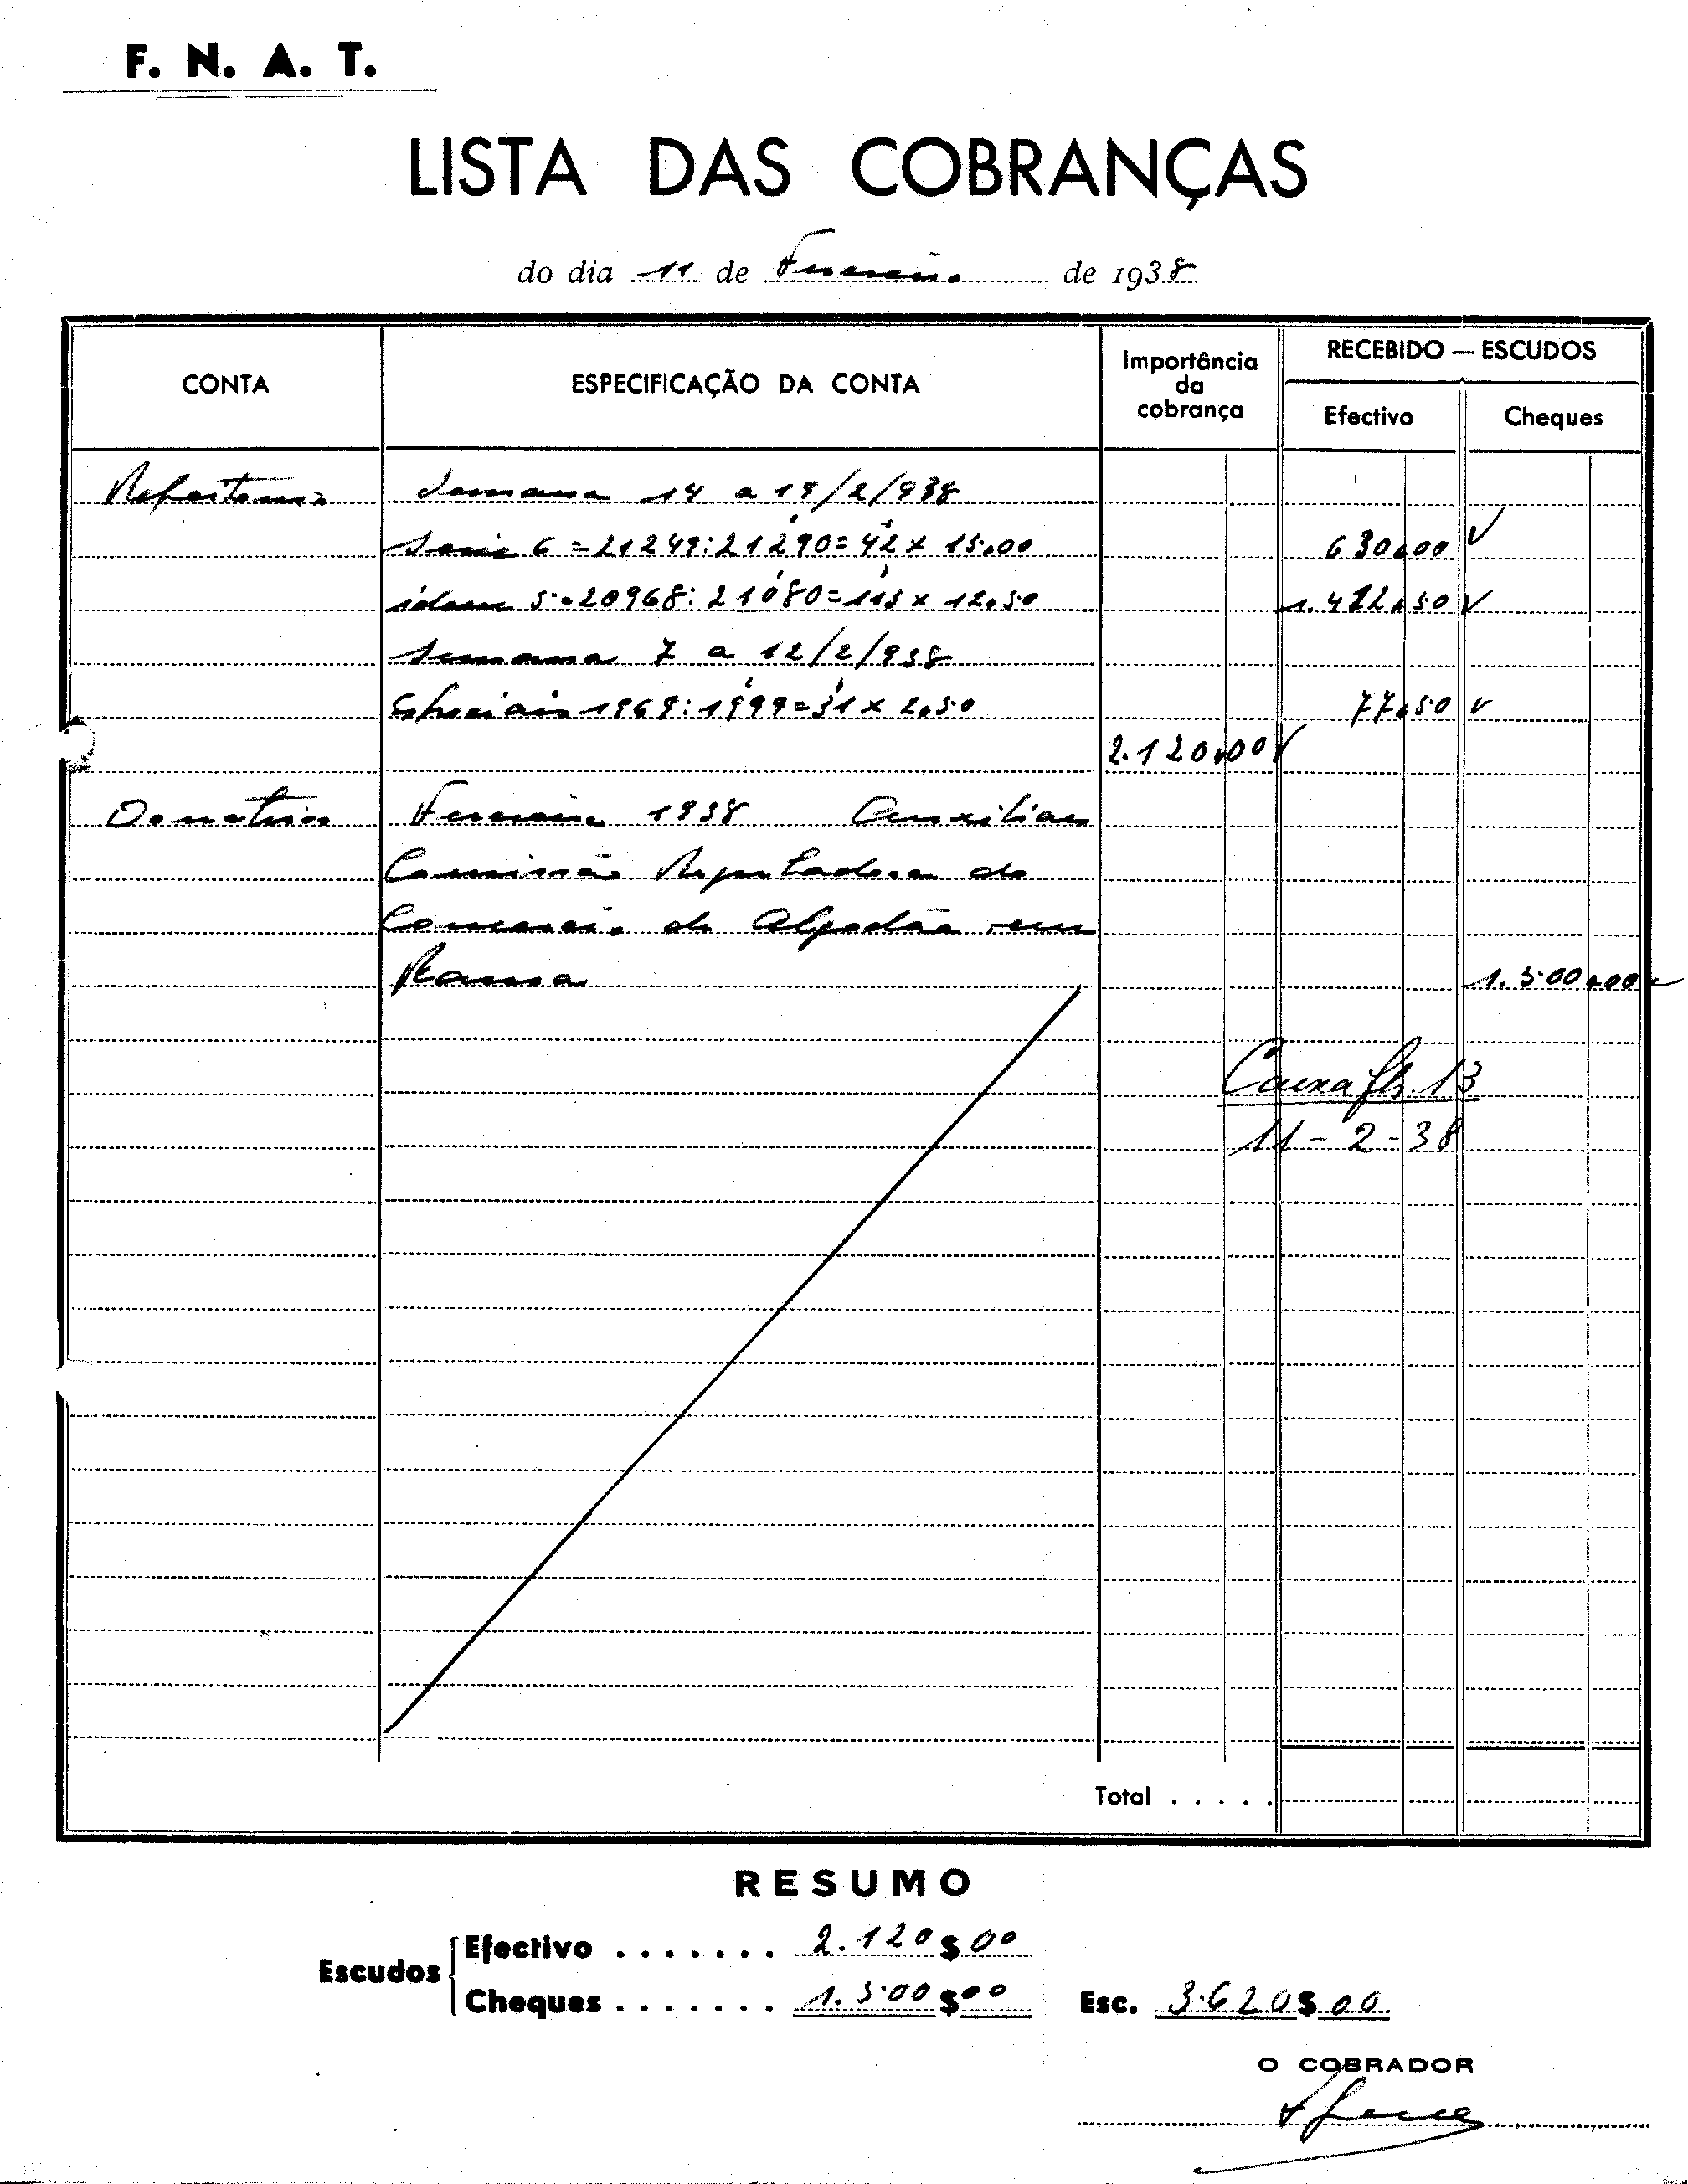 F. N. A. T.
LISTA DAS COBRANÇAS
do dia 11 de Fevereiro de 1938
CONTA
ESPECIFICAÇÃO DA CONTA
Importância da cobrança
RECEBIDO — ESCUDOS
Efectivo
Cheques
Refeitorio Semana 14 a 19/2/938
Serie 6 = 21249:21290 = 42 x 15,00 630,00
idem 5 = 20968:21080 = 113 x 12,50 1.412,50
Semana 7 a 12/2/938
Especiais 1969:1999 = 31 x 2,50 77,50
2.120,00
Donativos Fevereiro 1938 Auxiliar
Comissão Reguladora do
Comercio de Algodão em
Rama 1.500,00
Caixa fls. 13
11-2-38
Total . . . . .
RESUMO
Escudos
Efectivo . . . . . . . 2.120$00
Cheques . . . . . . . 1.500$00 Esc. 3.620$00
O COBRADOR